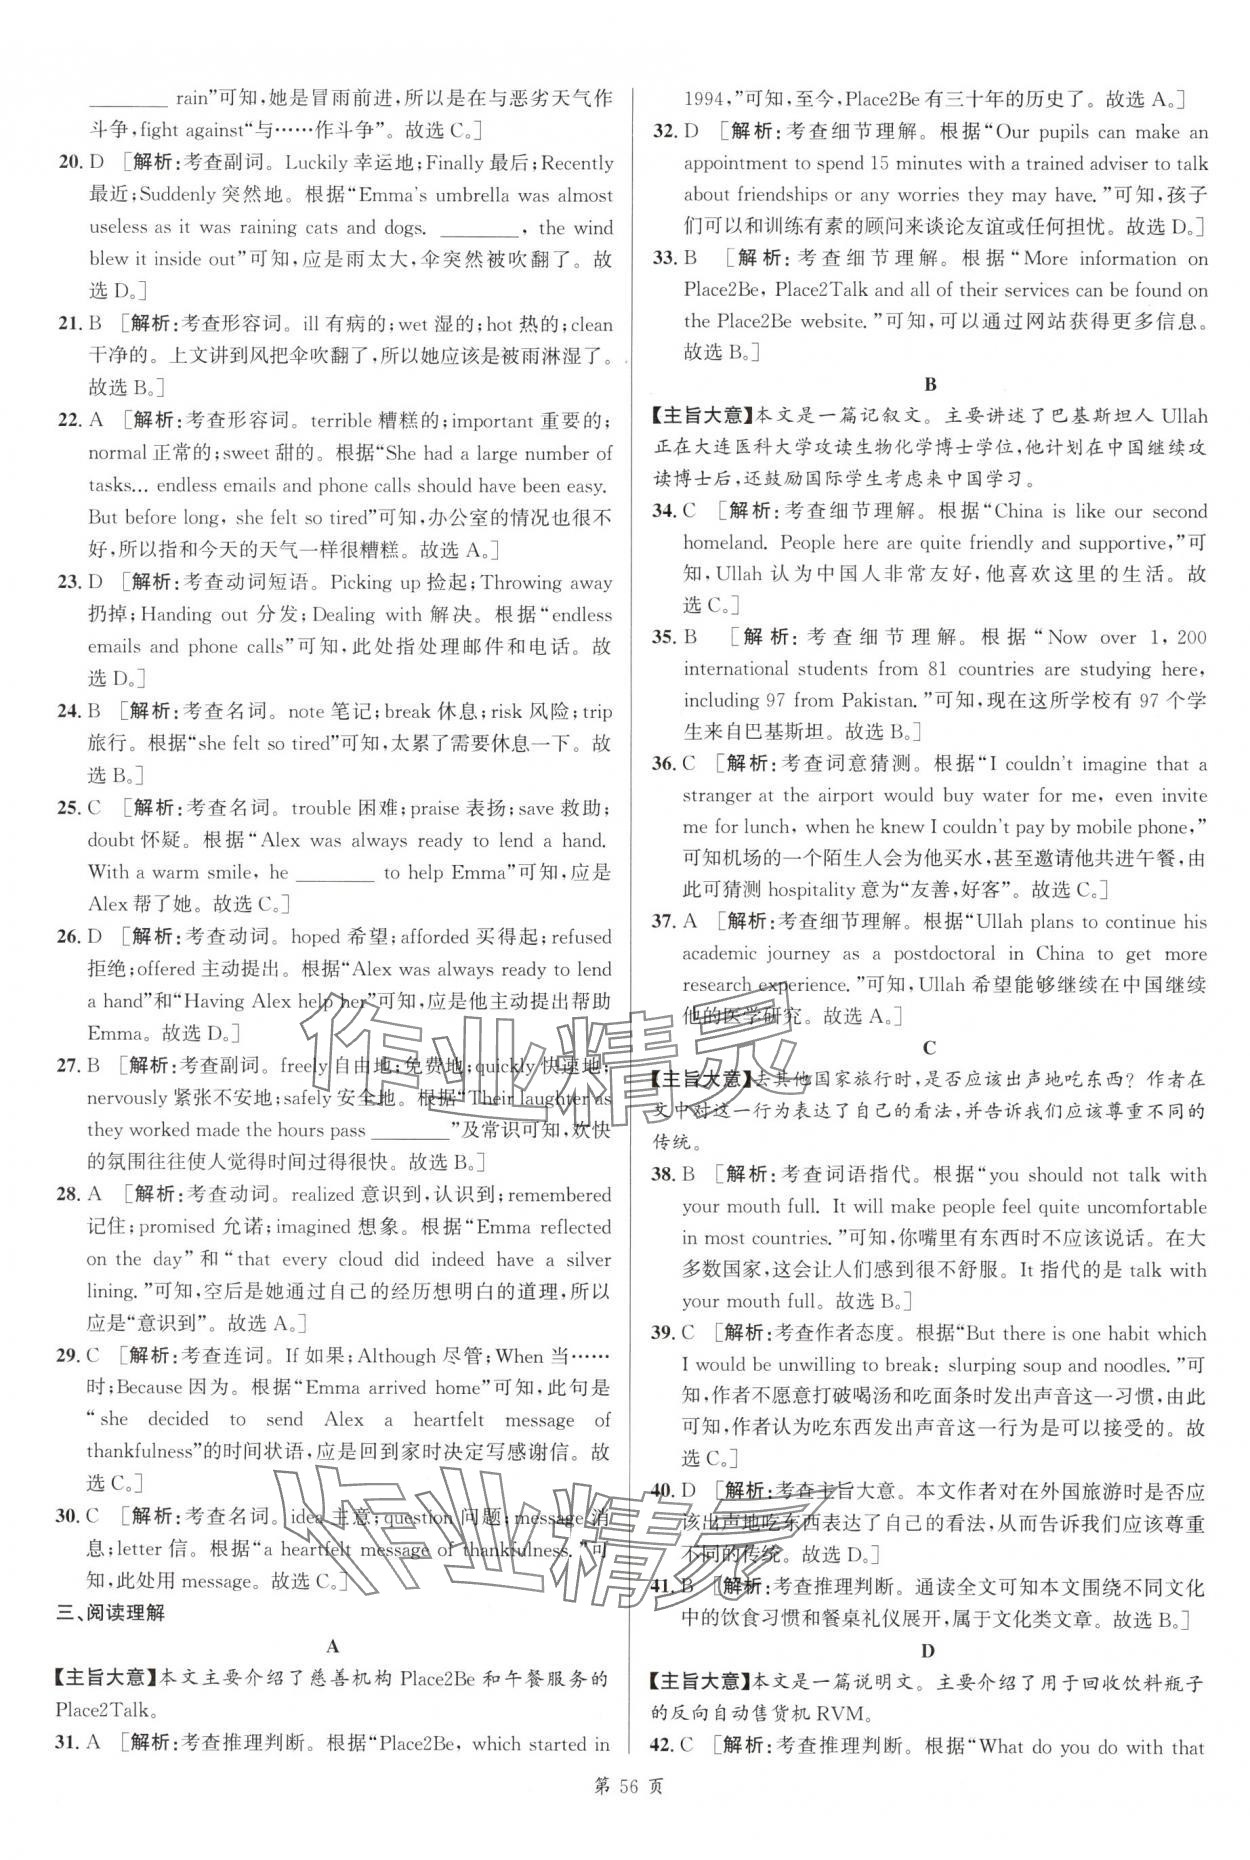 ________ rain”可知,她是冒雨前进,所以是在与恶劣天气作
斗争,fight against“与……作斗争”。故选 C。]
20. D [解析:考查副词。Luckily 幸运地;Finally 最后;Recently
最近;Suddenly 突然地。根据“Emma's umbrella was almost
useless as it was raining cats and dogs. ________, the wind
blew it inside out”可知,应是雨太大,伞突然被吹翻了。故
选 D。]
21. B [解析:考查形容词。ill 有病的;wet 湿的;hot 热的;clean
干净的。上文讲到风把伞吹翻了,所以她应该是被雨淋湿了。
故选 B。]
22. A [解析:考查形容词。terrible 糟糕的;important 重要的;
normal 正常的;sweet 甜的。根据“She had a large number of
tasks... endless emails and phone calls should have been easy.
But before long, she felt so tired”可知,办公室的情况也很不
好,所以指和今天的天气一样很糟糕。故选 A。]
23. D [解析:考查动词短语。Picking up 捡起;Throwing away
扔掉;Handing out 分发;Dealing with 解决。根据“endless
emails and phone calls”可知,此处指处理邮件和电话。故
选 D。]
24. B [解析:考查名词。note 笔记;break 休息;risk 风险;trip
旅行。根据“she felt so tired”可知,太累了需要休息一下。故
选 B。]
25. C [解析:考查名词。trouble 困难;praise 表扬;save 救助;
doubt 怀疑。根据“Alex was always ready to lend a hand.
With a warm smile, he ________ to help Emma”可知,应是
Alex 帮了她。故选 C。]
26. D [解析:考查动词。hoped 希望;afforded 买得起;refused
拒绝;offered 主动提出。根据“Alex was always ready to lend
a hand”和“Having Alex help her”可知,应是他主动提出帮助
Emma。故选 D。]
27. B [解析:考查副词。freely 自由地;免费地;quickly 快速地;
nervously 紧张不安地;safely 安全地。根据“Their laughter as
they worked made the hours pass ________”及常识可知,欢快
的氛围往往使人觉得时间过得很快。故选 B。]
28. A [解析:考查动词。realized 意识到,认识到;remembered
记住;promised 允诺;imagined 想象。根据“Emma reflected
on the day”和“that every cloud did indeed have a silver
lining.”可知,空后是她通过自己的经历想明白的道理,所以
应是“意识到”。故选 A。]
29. C [解析:考查连词。If 如果;Although 尽管;When 当……
时;Because 因为。根据“Emma arrived home”可知,此句是
“she decided to send Alex a heartfelt message of
thankfulness”的时间状语,应是回到家时决定写感谢信。故
选 C。]
30. C [解析:考查名词。idea 主意;question 问题;message 消
息;letter 信。根据“a heartfelt message of thankfulness.”可
知,此处用 message。故选 C。]
三、阅读理解
A
【主旨大意】本文主要介绍了慈善机构 Place2Be 和午餐服务的
Place2Talk。
31. A [解析:考查推理判断。根据“Place2Be, which started in
1994,”可知,至今,Place2Be 有三十年的历史了。故选 A。]
32. D [解析:考查细节理解。根据“Our pupils can make an
appointment to spend 15 minutes with a trained adviser to talk
about friendships or any worries they may have.”可知,孩子
们可以和训练有素的顾问来谈论友谊或任何担忧。故选 D。]
33. B [解析:考查细节理解。根据“More information on
Place2Be, Place2Talk and all of their services can be found on
the Place2Be website.”可知,可以通过网站获得更多信息。
故选 B。]
B
【主旨大意】本文是一篇记叙文。主要讲述了巴基斯坦人 Ullah
正在大连医科大学攻读生物化学博士学位,他计划在中国继续攻
读博士后,还鼓励国际学生考虑来中国学习。
34. C [解析:考查细节理解。根据“China is like our second
homeland. People here are quite friendly and supportive,”可
知,Ullah 认为中国人非常友好,他喜欢这里的生活。故
选 C。]
35. B [解析:考查细节理解。根据“Now over 1, 200
international students from 81 countries are studying here,
including 97 from Pakistan.”可知,现在这所学校有 97 个学
生来自巴基斯坦。故选 B。]
36. C [解析:考查词意猜测。根据“I couldn't imagine that a
stranger at the airport would buy water for me, even invite
me for lunch, when he knew I couldn't pay by mobile phone,”
可知机场的一个陌生人会为他买水,甚至邀请他共进午餐,由
此可猜测 hospitality 意为“友善,好客”。故选 C。]
37. A [解析:考查细节理解。根据“Ullah plans to continue his
academic journey as a postdoctoral in China to get more
research experience.”可知,Ullah 希望能够继续在中国继续
他的医学研究。故选 A。]
C
【主旨大意】去其他国家旅行时,是否应该出声地吃东西?作者在
文中对这一行为表达了自己的看法,并告诉我们应该尊重不同的
传统。
38. B [解析:考查词语指代。根据“you should not talk with
your mouth full. It will make people feel quite uncomfortable
in most countries.”可知,你嘴里有东西时不应该说话。在大
多数国家,这会让人们感到很不舒服。It 指代的是 talk with
your mouth full。故选 B。]
39. C [解析:考查作者态度。根据“But there is one habit which
I would be unwilling to break: slurping soup and noodles.”可
知,作者不愿意打破喝汤和吃面条时发出声音这一习惯,由此
可知,作者认为吃东西发出声音这一行为是可以接受的。故
选 C。]
40. D [解析:考查主旨大意。本文作者对在外国旅游时是否应
该出声地吃东西表达了自己的看法,从而告诉我们应该尊重
不同的传统。故选 D。]
41. B [解析:考查推理判断。通读全文可知本文围绕不同文化
中的饮食习惯和餐桌礼仪展开,属于文化类文章。故选 B。]
D
【主旨大意】本文是一篇说明文。主要介绍了用于回收饮料瓶子
的反向自动售货机 RVM。
42. C [解析:考查推理判断。根据“What do you do with that
第 56 页
作业精灵
作业精灵